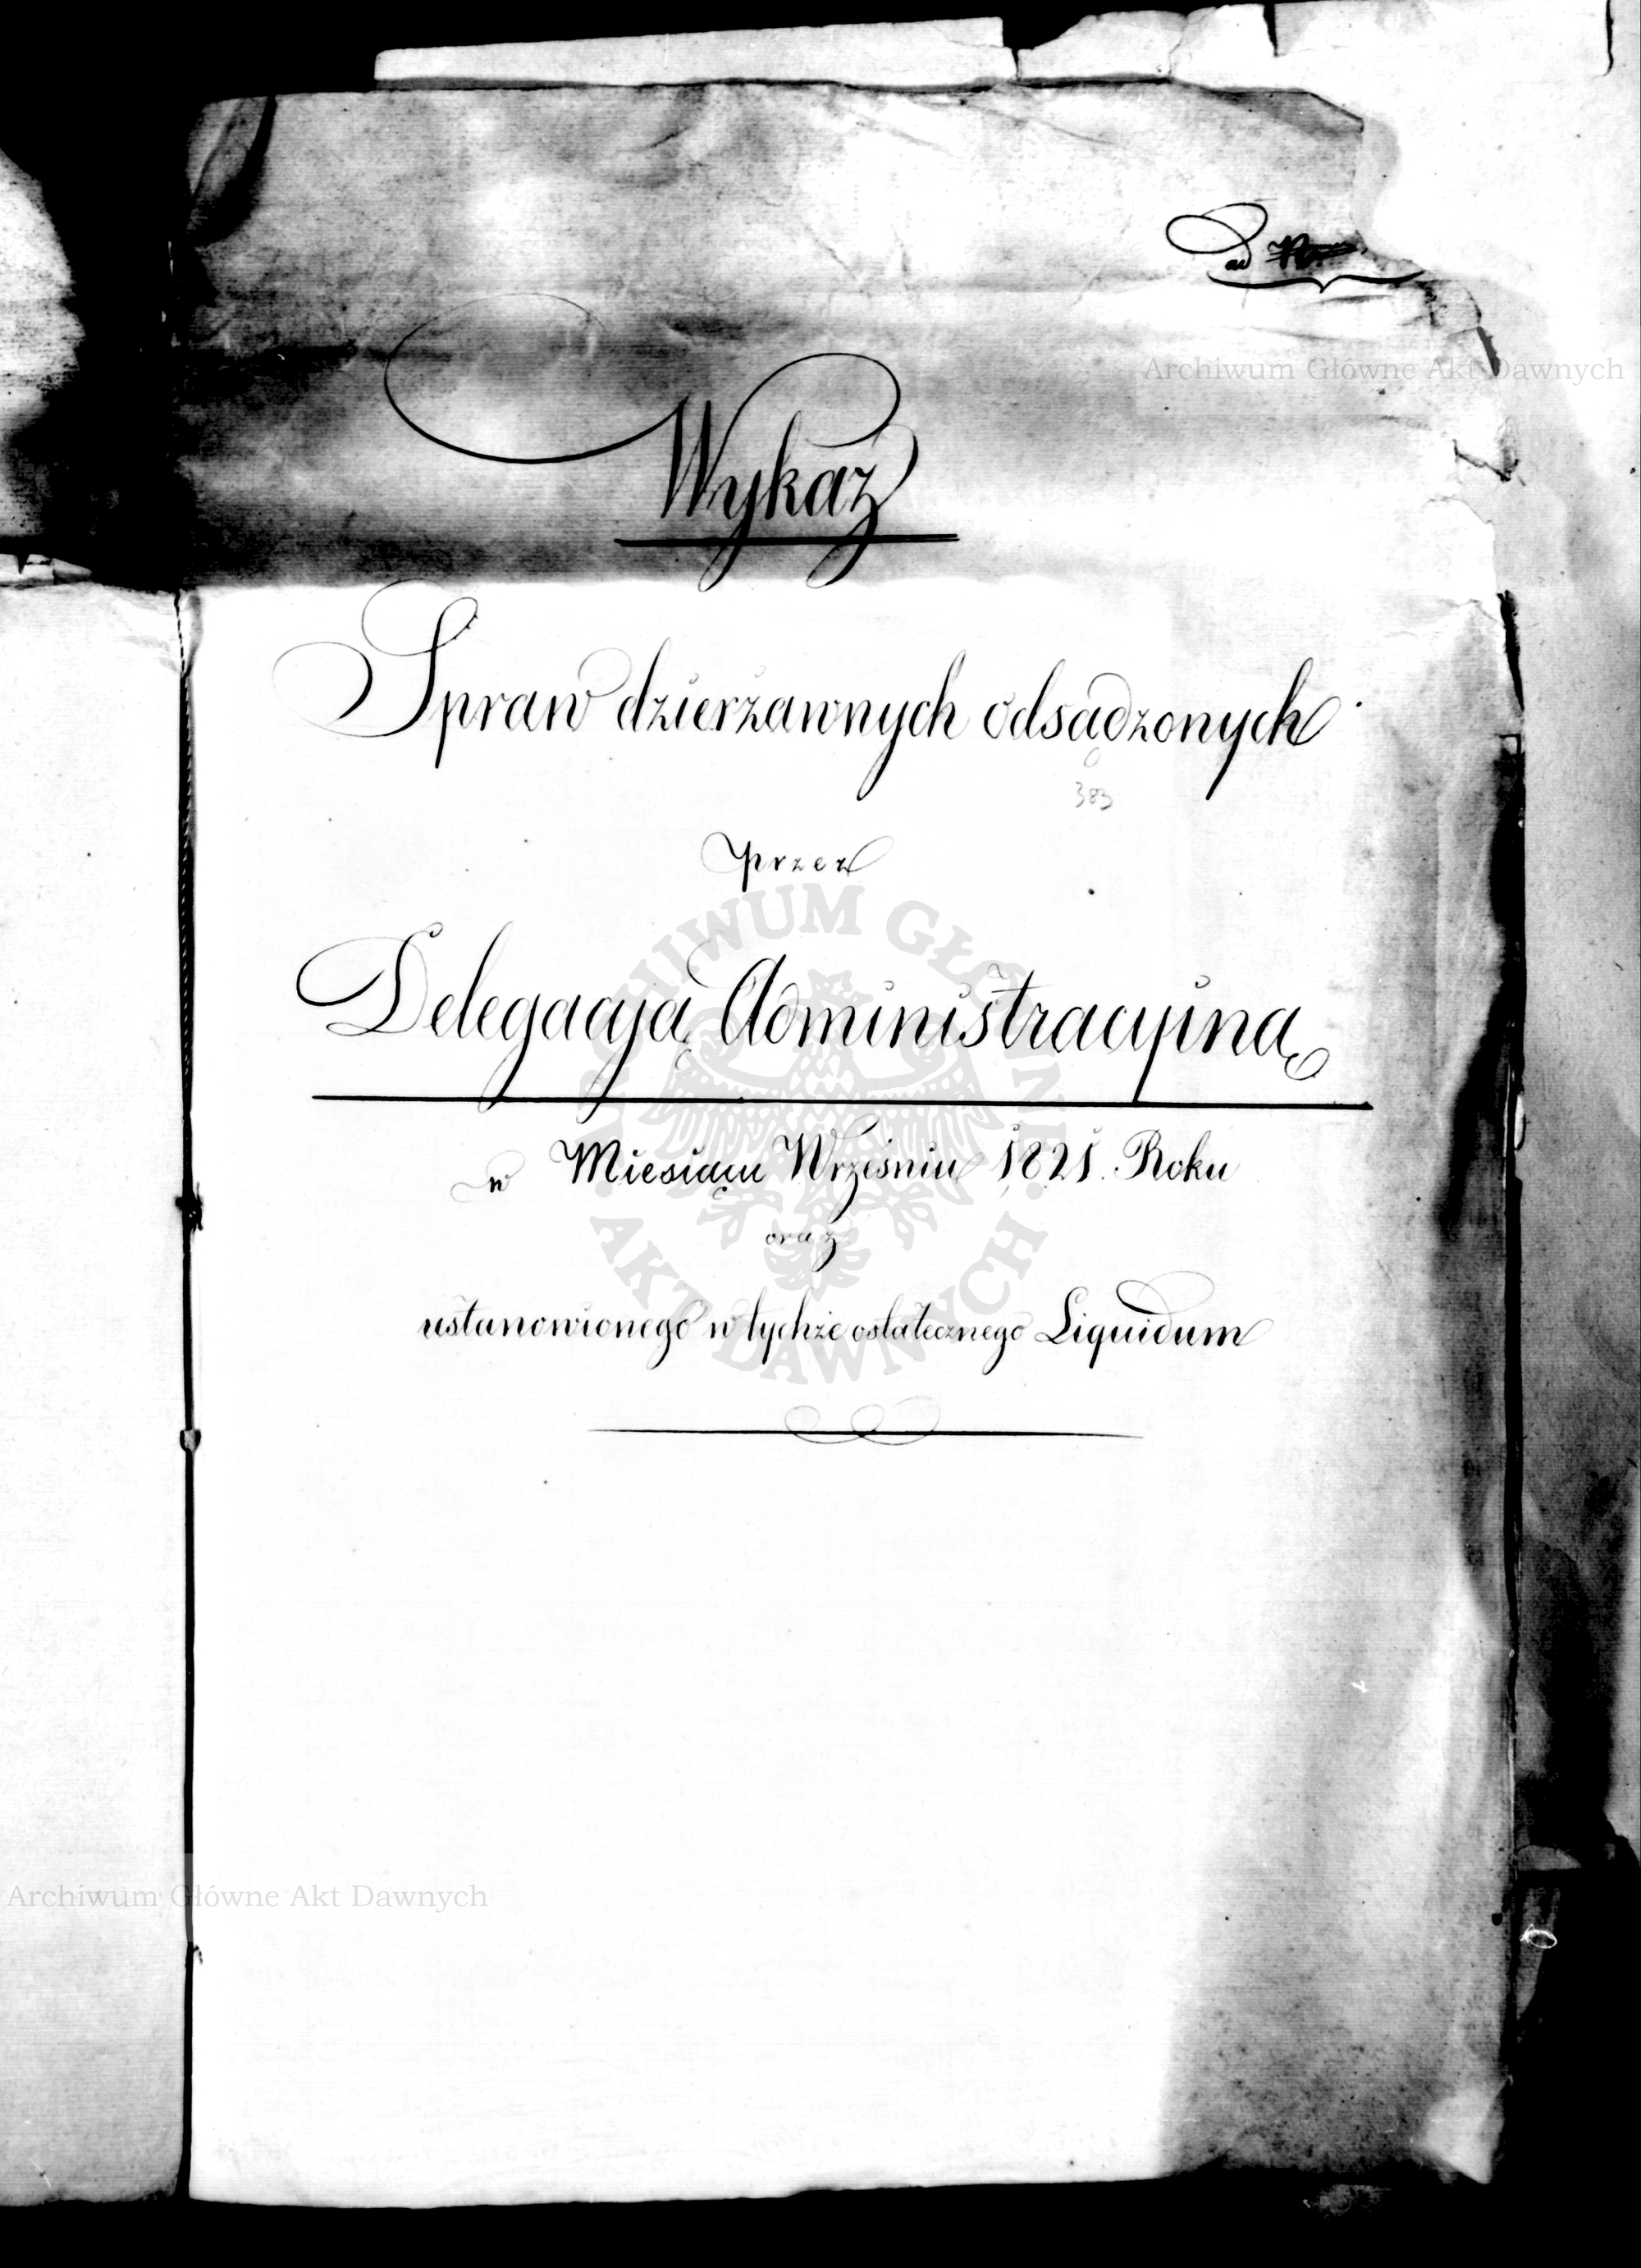 ad
Archiwum Główne Akt Dawnych
Wykaz
Spraw dzierżawnych odsądzonych
383
przez
Delegacją Administracyiną
w Miesiącu Wrześniu 1821. Roku
oraz
ustanowionego w tychże ostatecznego Liquidum
ARCHIWUM GŁÓWNE AKT DAWNYCH
Archiwum Główne Akt Dawnych